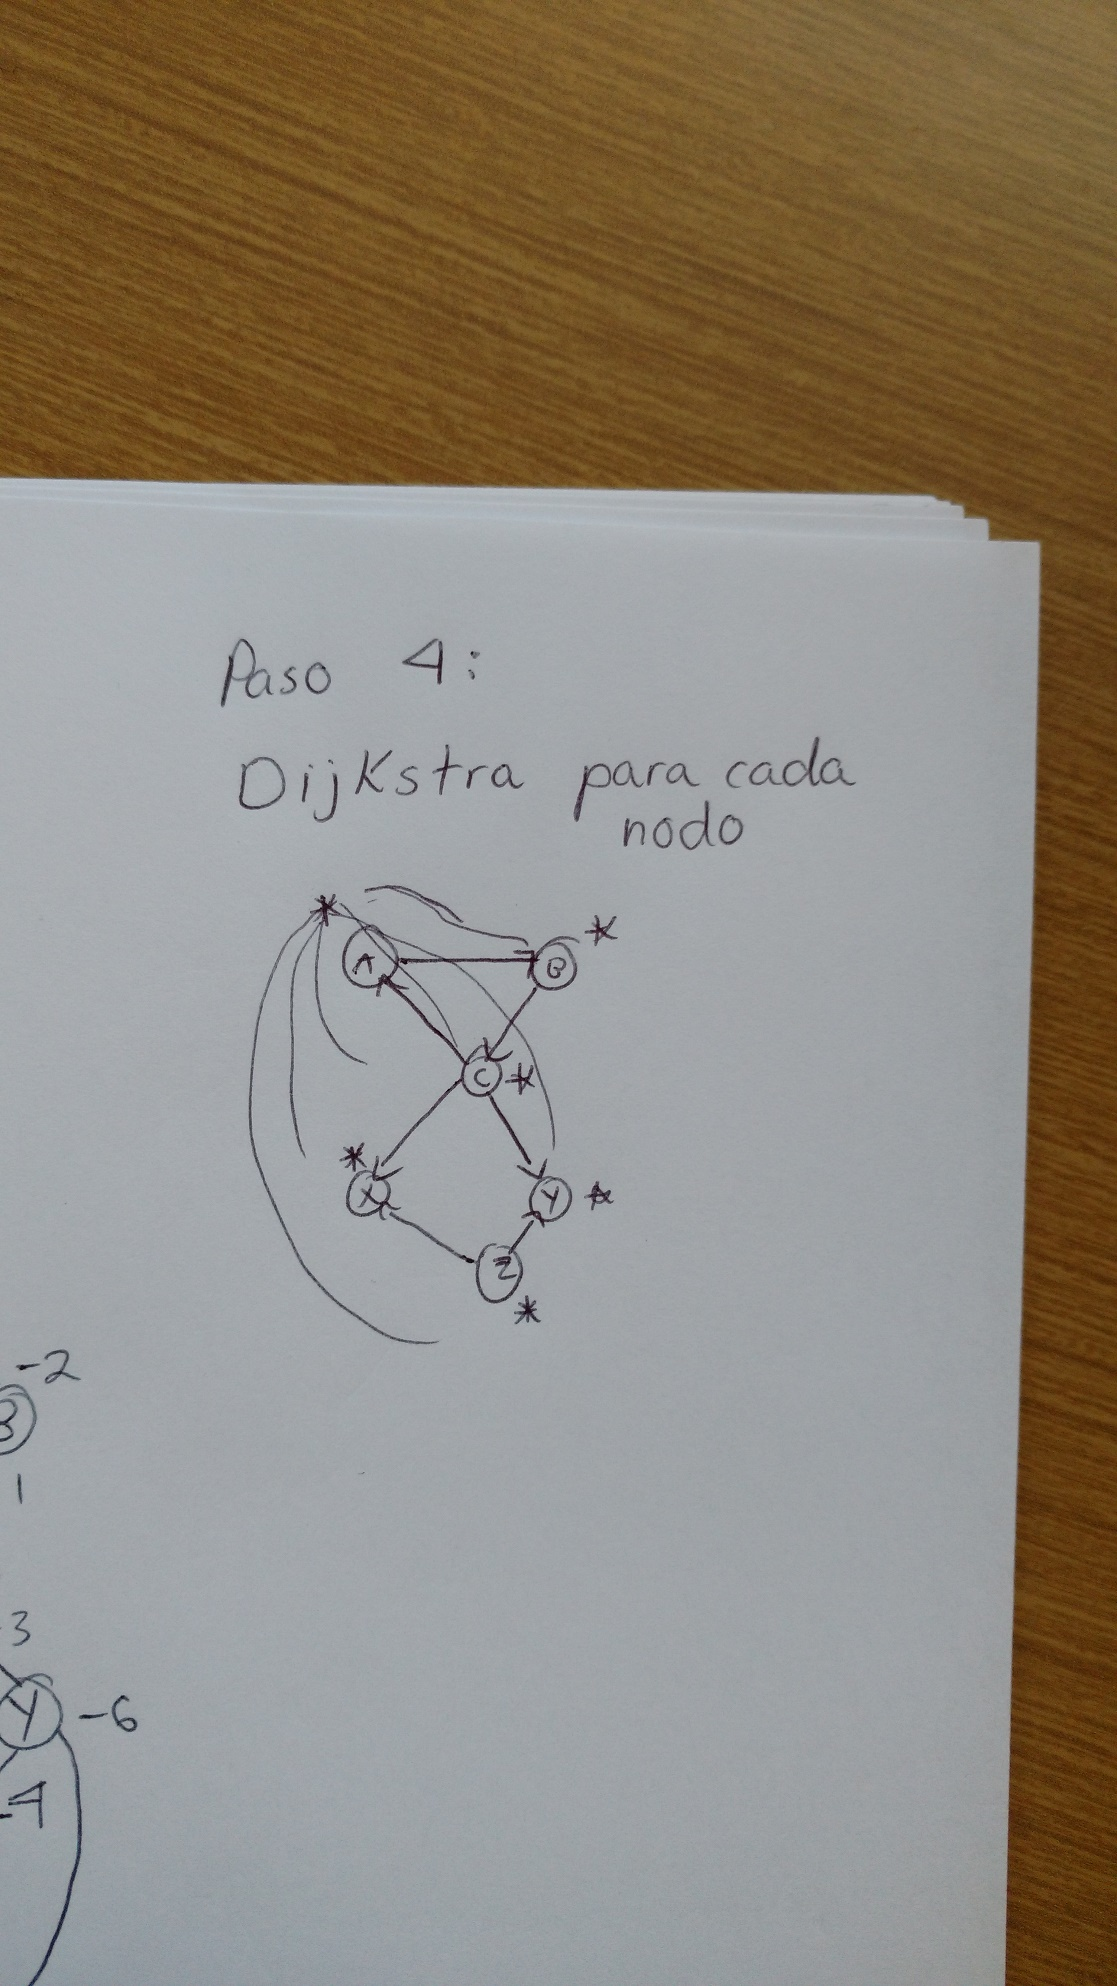 Paso 4:
Dijkstra para cada
nodo
*
A
B
*
C
*
*
X
Y
*
Z
*
-2
B
1
-3
Y
-6
-4